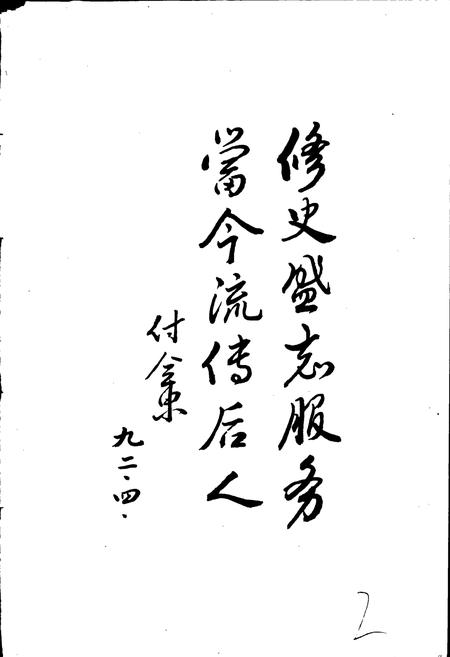 修史盛志服务
當今流传后人
付
九二·四·
2